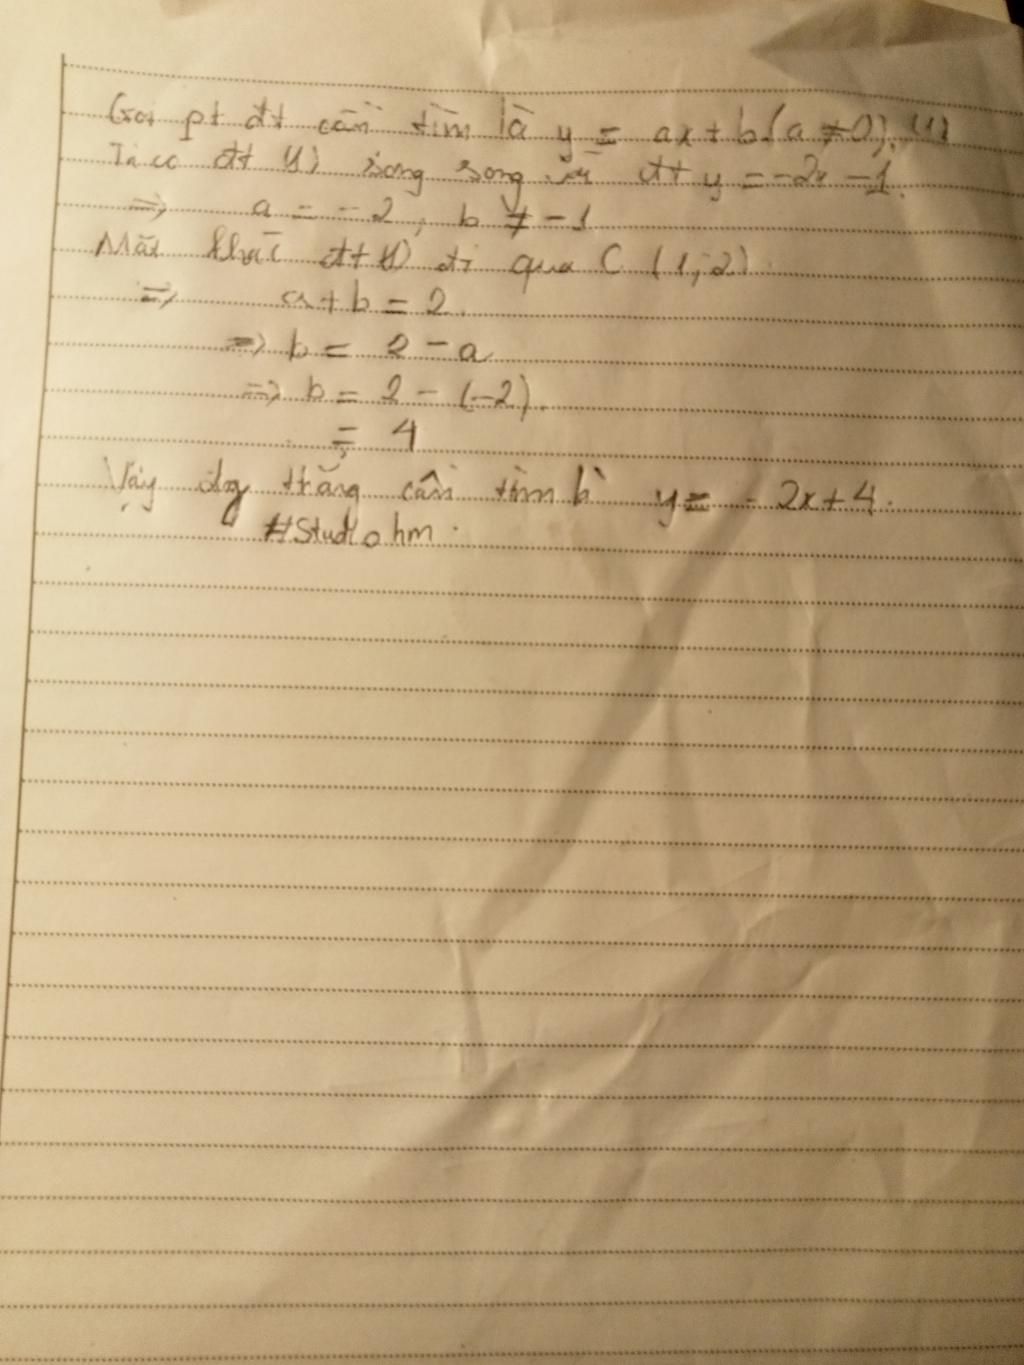 Gọi pt đt cần tìm là y = ax + b (a ≠ 0). (1)
Ta có đt (1) song song với đt y = -2x - 1.
=> a = -2, b ≠ -1
Mặt khác đt (1) đi qua C (1; 2).
=> a + b = 2.
=> b = 2 - a
=> b = 2 - (-2).
= 4
Vậy đg thẳng cần tìm là y = -2x + 4.
#Studlohm.